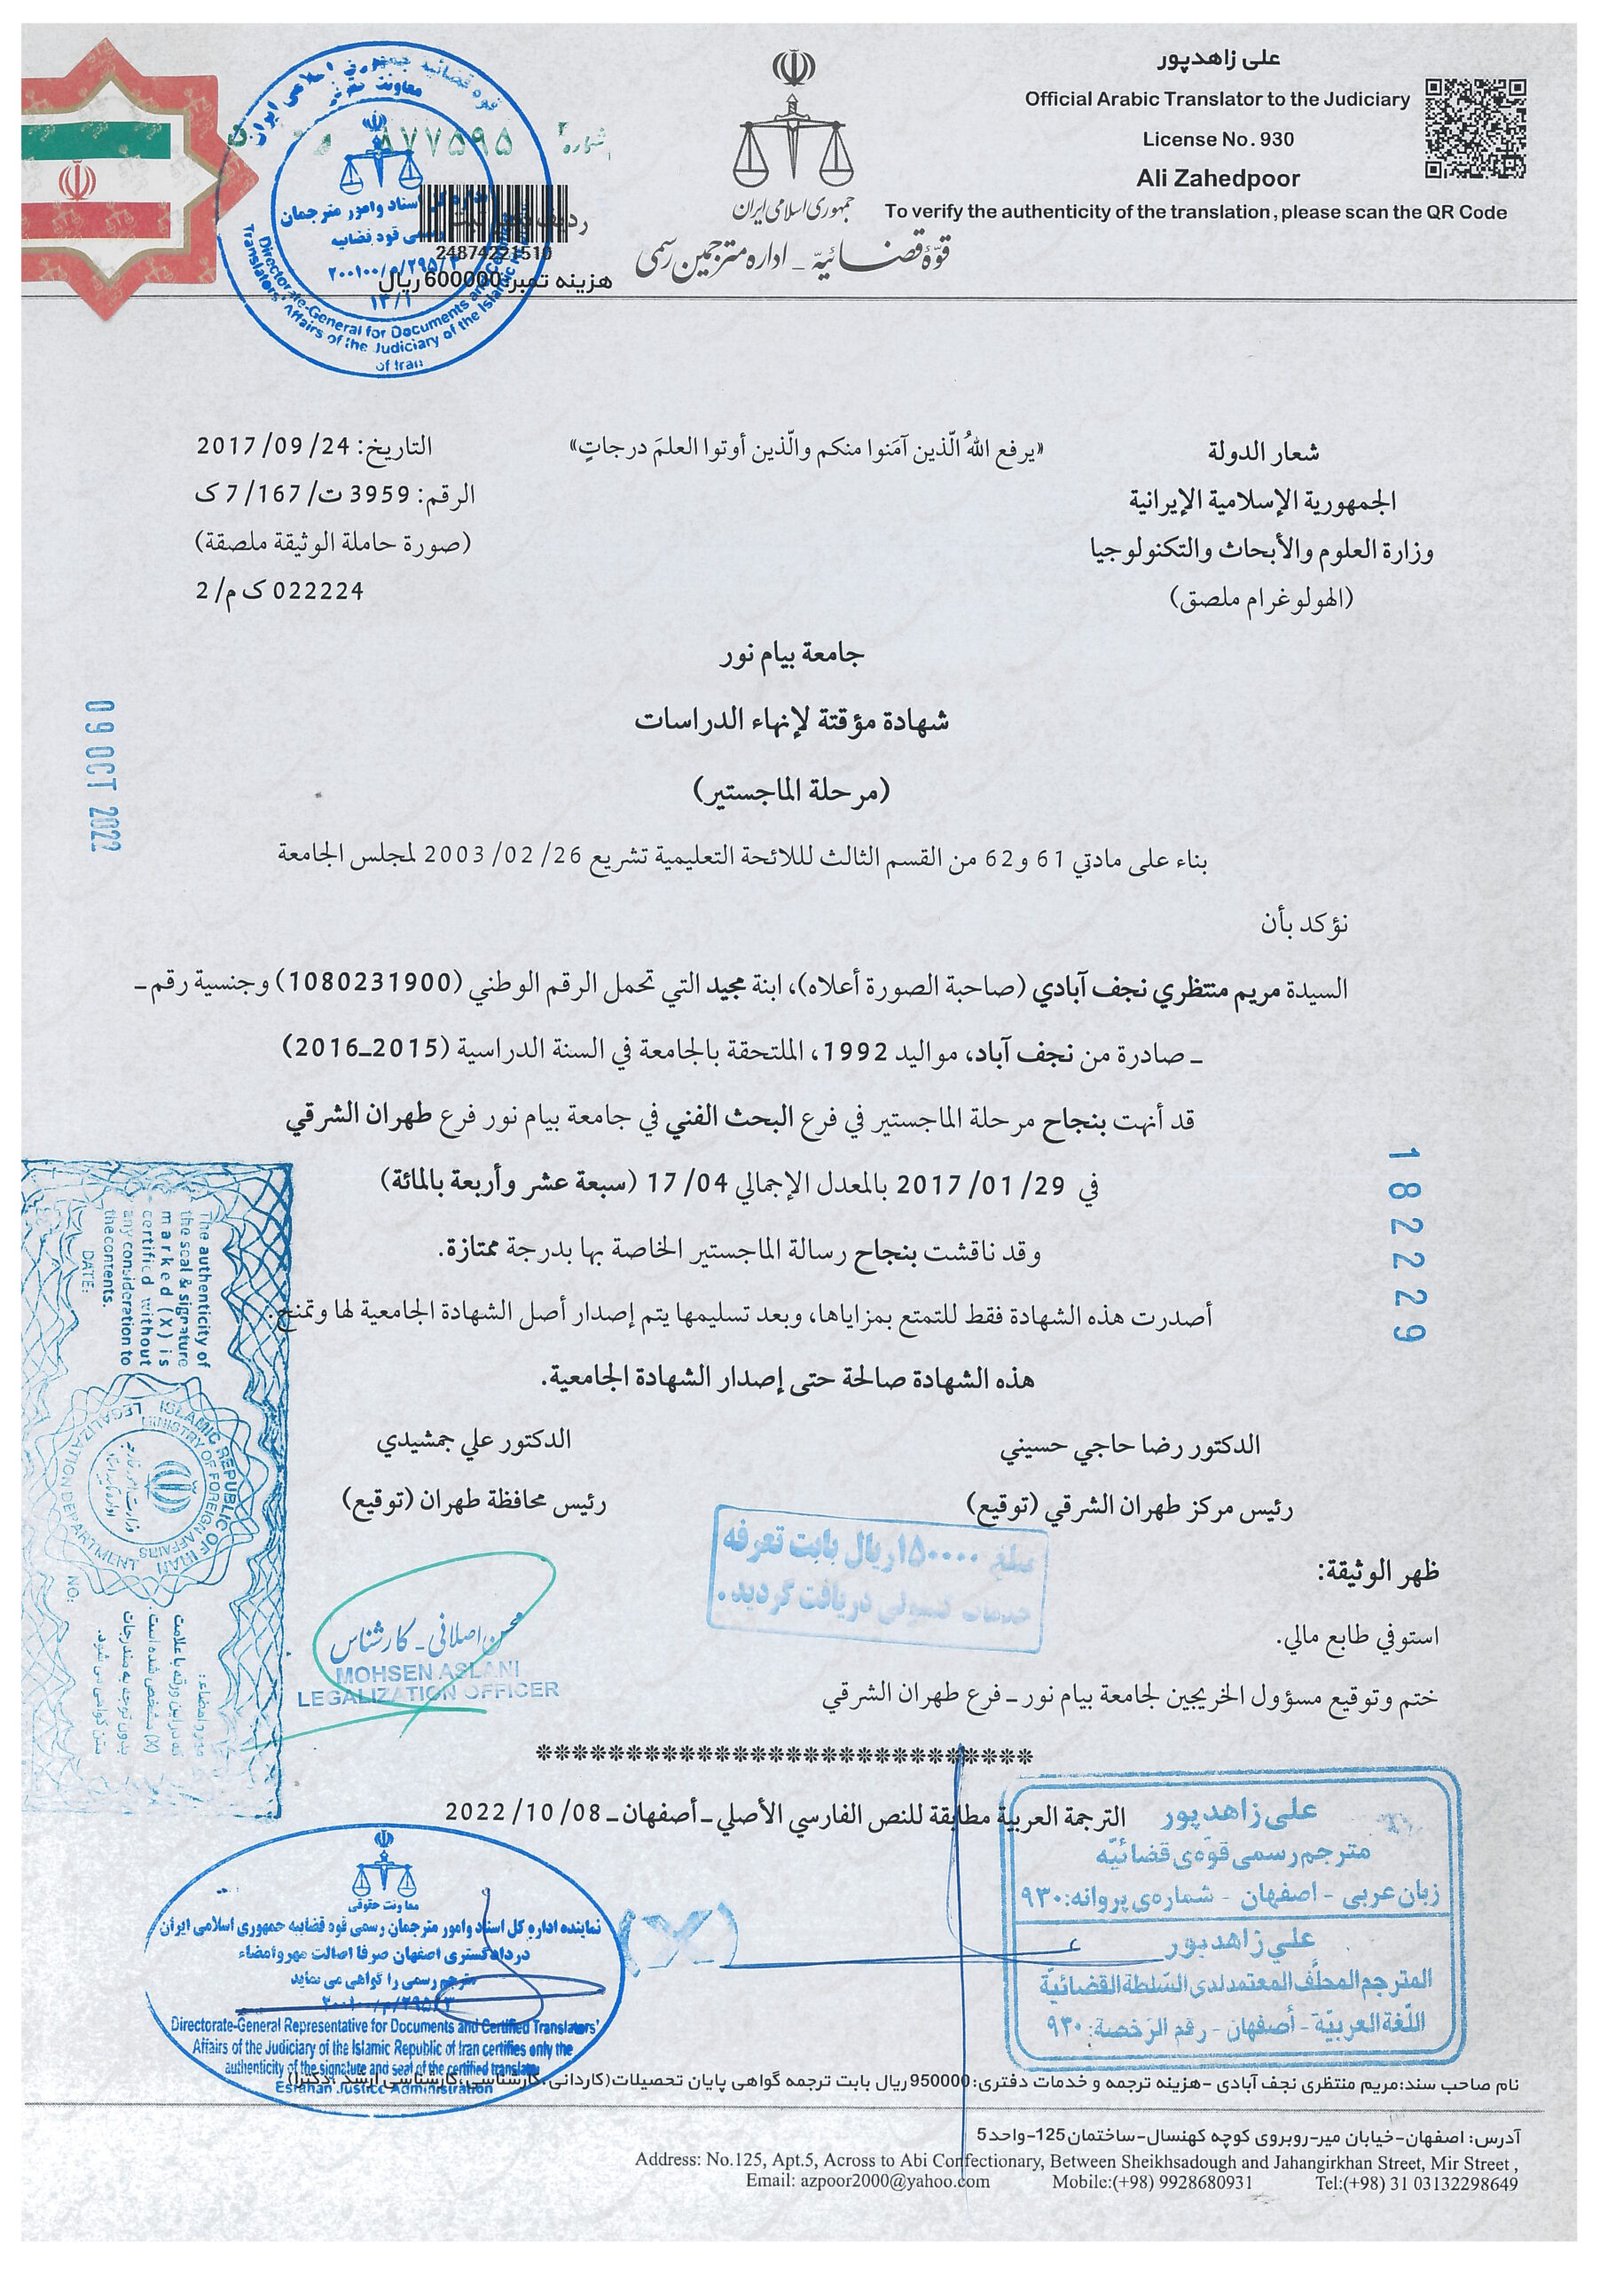 علی زاهدپور
Official Arabic Translator to the Judiciary
License No. 930
Ali Zahedpoor
To verify the authenticity of the translation, please scan the QR Code
جمهوری اسلامی ایران
قوّهٔ قضائیّه - اداره مترجمین رسمی
شماره
۸۷۷۵۹۵
24874221510
هزینه تمبر: 600000 ریال
معاونت حقوقی
اداره کل اسناد وامور مترجمان
رسمی قوه قضاییه
Directorate-General for Documents and Certified
Translators' Affairs of the Judiciary of the Islamic Republic
of Iran
شعار الدولة
الجمهورية الإسلامية الإيرانية
وزارة العلوم والأبحاث والتكنولوجيا
(الهولوغرام ملصق)
«يرفع اللهُ الّذين آمَنوا منكم والّذين أوتوا العلمَ درجاتٍ»
التاريخ: 24/ 09/ 2017
الرقم: 3959 ت/ 167/ 7 ک
(صورة حاملة الوثيقة ملصقة)
022224 ک م/ 2
جامعة بيام نور
شهادة مؤقتة لإنهاء الدراسات
(مرحلة الماجستير)
09 OCT 2022
بناء على مادتي 61 و62 من القسم الثالث لللائحة التعليمية تشريع 26/ 02/ 2003 لمجلس الجامعة
نؤكد بأن
السيدة مريم منتظري نجف آبادي (صاحبة الصورة أعلاه)، ابنة مجيد التي تحمل الرقم الوطني (1080231900) وجنسية رقم ـ
ـ صادرة من نجف آباد، مواليد 1992، الملتحقة بالجامعة في السنة الدراسية (2015ـ2016)
قد أنهت بنجاح مرحلة الماجستير في فرع البحث الفني في جامعة بيام نور فرع طهران الشرقي
في 29/ 01/ 2017 بالمعدل الإجمالي 04/ 17 (سبعة عشر وأربعة بالمائة)
وقد ناقشت بنجاح رسالة الماجستير الخاصة بها بدرجة ممتازة.
أصدرت هذه الشهادة فقط للتمتع بمزاياها، وبعد تسليمها يتم إصدار أصل الشهادة الجامعية لها وتمنح.
هذه الشهادة صالحة حتى إصدار الشهادة الجامعية.
182229
الدكتور رضا حاجي حسيني
رئيس مركز طهران الشرقي (توقيع)
الدكتور علي جمشيدي
رئيس محافظة طهران (توقيع)
مبلغ ۱۵۰۰۰۰ ریال بابت تعرفه
خدمات کنسولی دریافت گردید.
ظهر الوثيقة:
استوفي طابع مالي.
ختم وتوقيع مسؤول الخريجين لجامعة بيام نور ـ فرع طهران الشرقي
The authenticity of
the seal & signature
marked (X) is
certified without
any consideration to
the contents.
DATE:
ISLAMIC REPUBLIC OF IRAN
MINISTRY OF FOREIGN AFFAIRS
LEGALIZATION DEPARTMENT
NO:
محسن اصلانی - کارشناس
MOHSEN ASLANI
LEGALIZATION OFFICER
****************************
الترجمة العربية مطابقة للنص الفارسي الأصلي ـ أصفهان ـ 08/ 10/ 2022
علی زاهدپور
مترجم رسمی قوّه‌ی قضائیّه
زبان عربی - اصفهان - شماره‌ی پروانه: ۹۳۰
علي زاهدپور
المترجم المحلَّف المعتمد لدى السّلطة القضائيّة
اللّغة العربيّة - أصفهان - رقم الرّخصة: ۹۳۰
(X)
معاونت حقوقی
نماینده اداره کل اسناد وامور مترجمان رسمی قوه قضاییه جمهوری اسلامی ایران
در دادگستری اصفهان صرفا اصالت مهر وامضاء
مترجم رسمی را گواهی می نماید
Directorate-General Representative for Documents and Certified Translators'
Affairs of the Judiciary of the Islamic Republic of Iran certifies only the
authenticity of the signature and seal of the certified translator
Esfahan Justice Administration
نام صاحب سند: مریم منتظری نجف آبادی - هزینه ترجمه و خدمات دفتری: 950000 ریال بابت ترجمه گواهی پایان تحصیلات (کاردانی، کارشناسی، کارشناسی ارشد، دکترا)
آدرس: اصفهان-خیابان میر-روبروی کوچه کهنسال-ساختمان 125-واحد 5
Address: No.125, Apt.5, Across to Abi Confectionary, Between Sheikhsadough and Jahangirkhan Street, Mir Street ,
Email: azpoor2000@yahoo.com Mobile:(+98) 9928680931 Tel:(+98) 31 03132298649